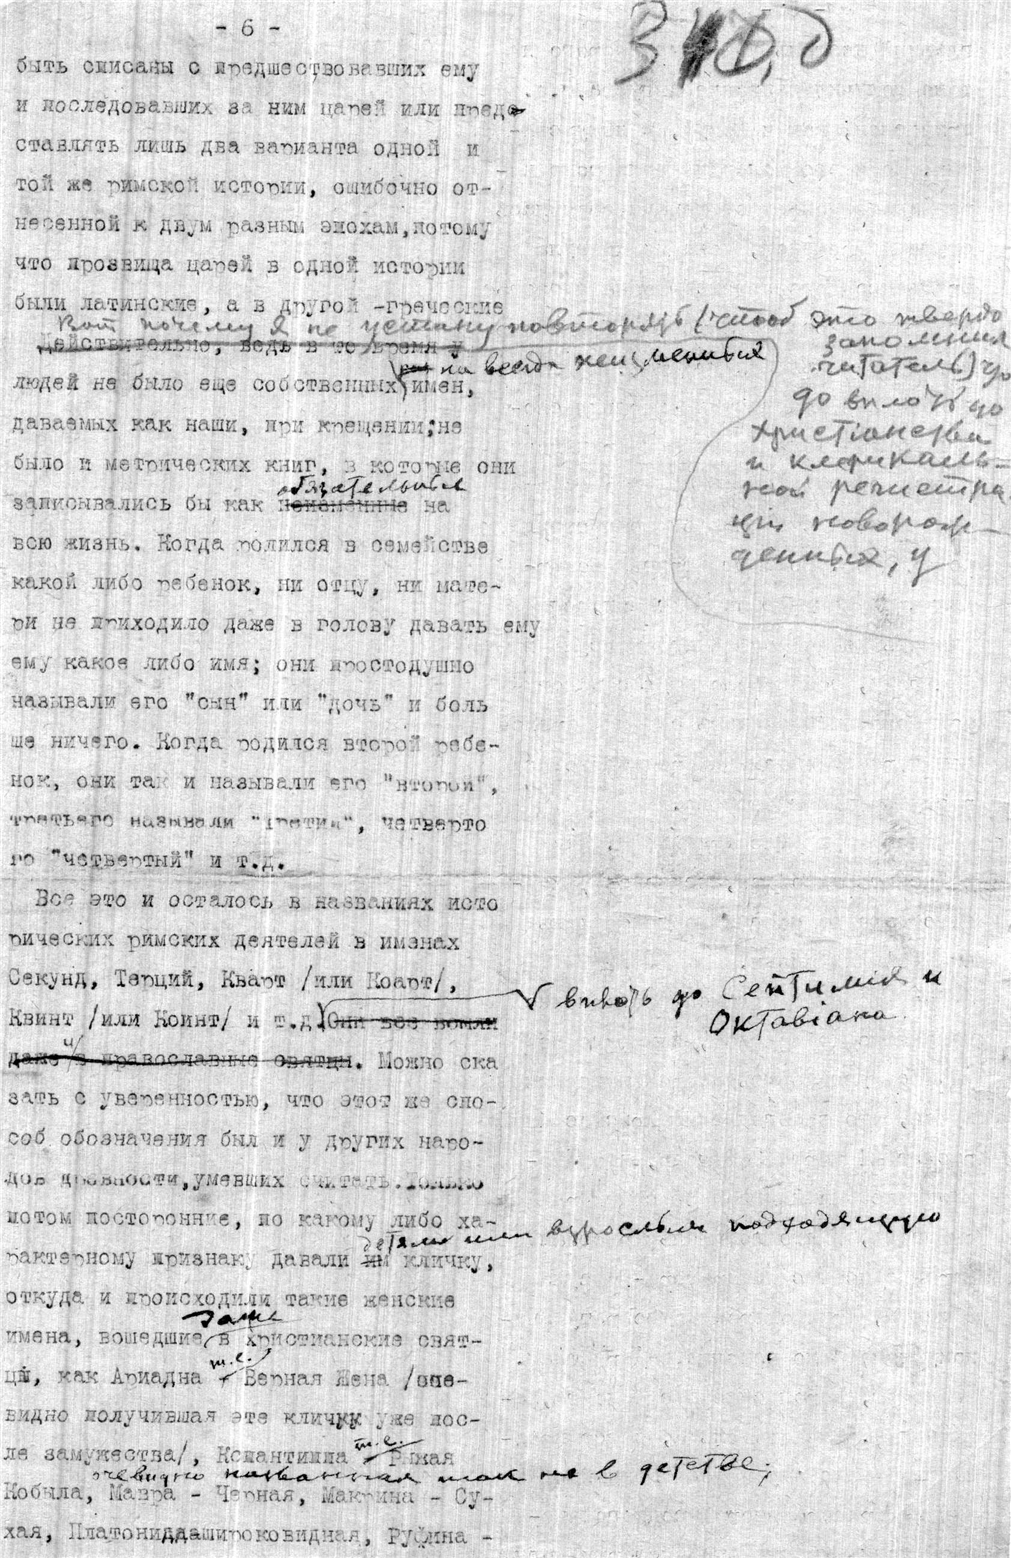 - 6 -
быть списаны с предшествовавших ему
и последовавших за ним царей или пред-
ставлять лишь два варианта одной и
той же римской истории, ошибочно от-
несенной к двум разным эпохам,потому
что прозвища царей в одной истории
были латинские, а в другой -греческие
Вот почему я не устану повторять (чтоб это твердо
запомнил
читатель) что
до вплоть до
христианства
и клерикаль-
ной регистра-
ции новорож-
денных, у
Действительно, ведь в то время у
на всегда неизменных
людей не было еще собственных имен,
даваемых как наши, при крещении;не
было и метрических книг, в которые они
обязательные
записывались бы как неизменные на
всю жизнь. Когда родился в семействе
какой либо ребенок, ни отцу, ни мате-
ри не приходило даже в голову давать ему
ему какое либо имя; они простодушно
называли его "сын" или "дочь" и боль
ше ничего. Когда родился второй ребе-
нок, они так и называли его "второй",
третьего называли "третий", четверто
го "четвертый" и т.д.
Все это и осталось в названиях исто
рических римских деятелей в именах
Секунд, Терций, Кварт /или Коарт/,
вплоть до Септимия и
Октавіана
Квинт /или Коинт/ и т.д. Они все вошли
даже и в православные святцы. Можно ска
зать с уверенностью, что этот же спо-
соб обозначения был и у других наро-
дов древности,умевших считать.Только
потом посторонние, по какому либо ха-
детям или взрослым подходящую
рактерному признаку давали им кличку,
откуда и происходили такие женские
даже
имена, вошедшие в христианские свят-
т.е.
цы, как Ариадна - Верная Жена /оче-
видно получившая эту кличку уже пос-
т.е.
ле замужества/, Ксантиппа - Рыжая
очевидно названная так не в детстве,
Кобыла, Мавра - Черная, Макрина - Су-
хая, Платониддашироковидная, Руфина -